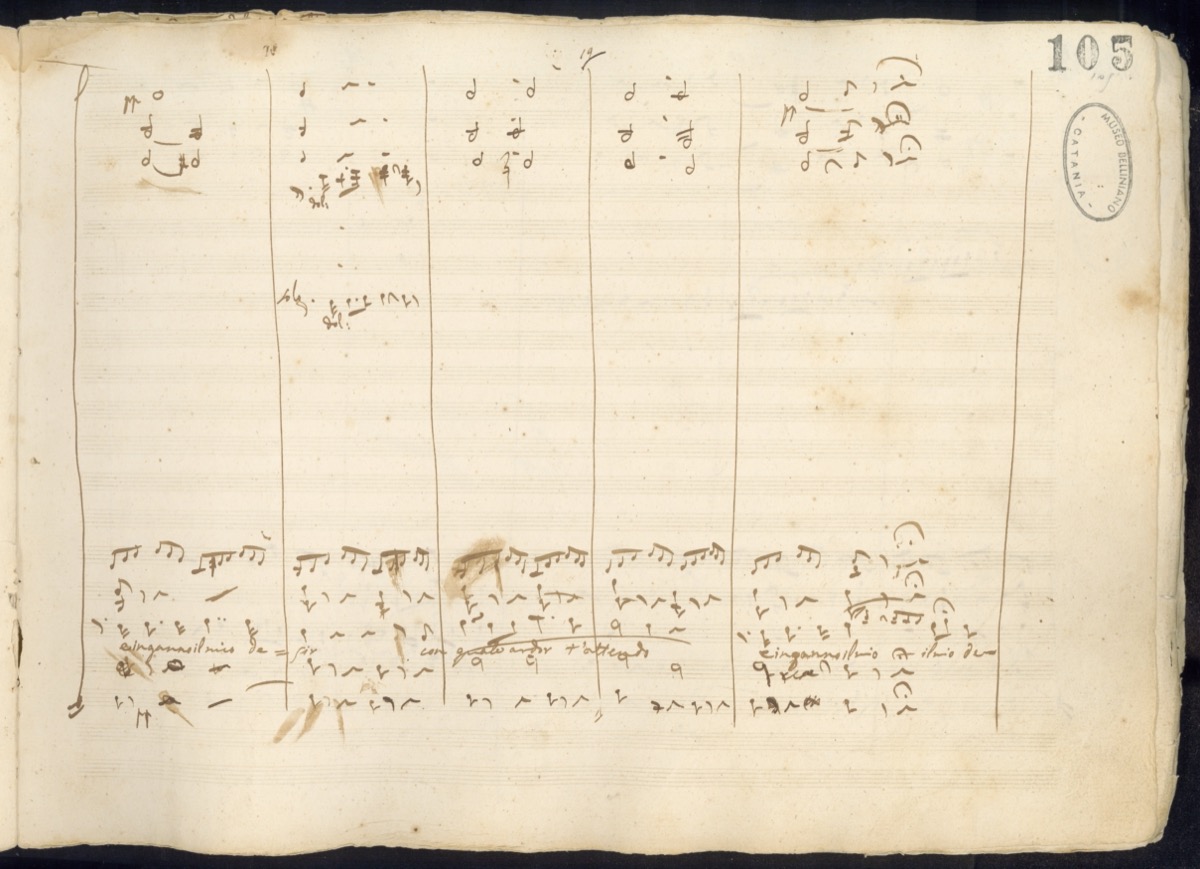 105
MUSEO BELLINIANO
- CATANIA -
19
e inganna il mio de = sir con quale ardor t'attendo e inganna il mio il mio de=